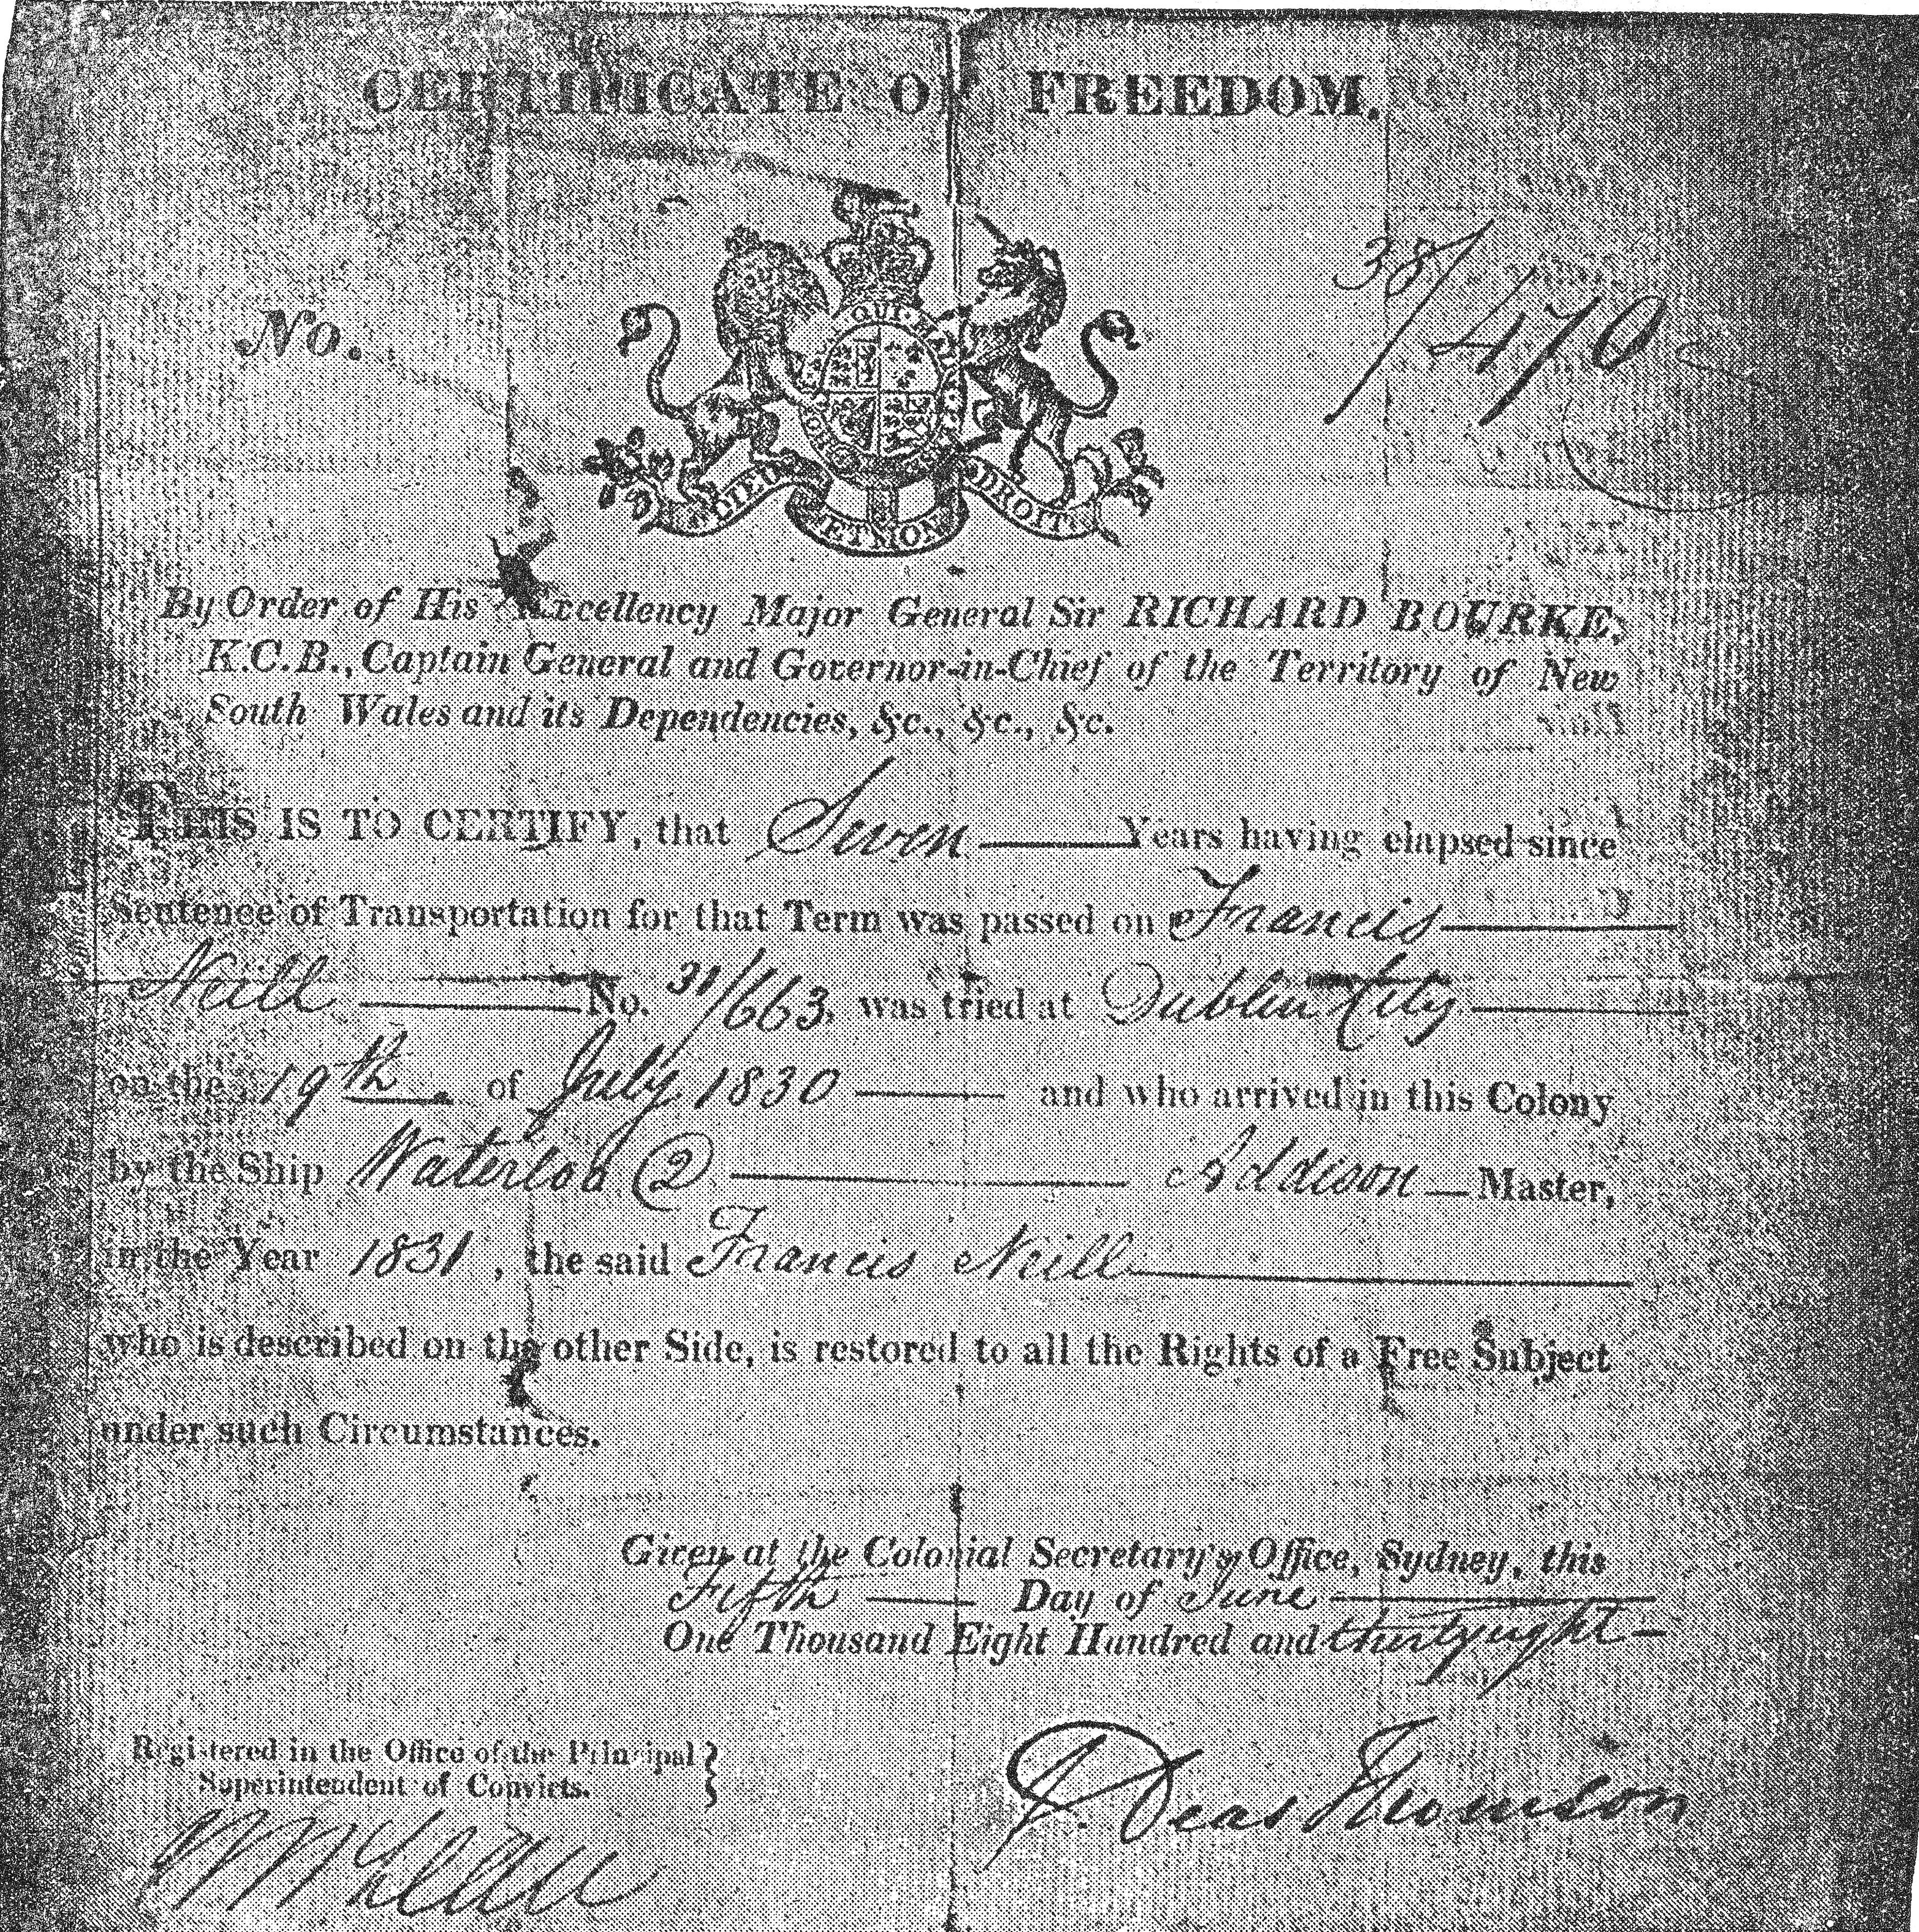 CERTIFICATE OF FREEDOM.
No. 38/470
QUI
DIEU ET MON DROIT
By Order of His Excellency Major General Sir RICHARD BOURKE,
K.C.B., Captain General and Governor-in-Chief of the Territory of New
South Wales and its Dependencies, &c., &c., &c.
THIS IS TO CERTIFY, that Seven Years having elapsed since
Sentence of Transportation for that Term was passed on Francis
Neill No. 31/663, was tried at Dublin City
on the 19th of July 1830 and who arrived in this Colony
by the Ship Waterloo (2) Addison Master,
in the Year 1831, the said Francis Neill
who is described on the other Side, is restored to all the Rights of a Free Subject
under such Circumstances.
Given at the Colonial Secretary's Office, Sydney, this
Fifth Day of June
One Thousand Eight Hundred and thirty eight
Registered in the Office of the Principal
Superintendent of Convicts.
Deas Thomson